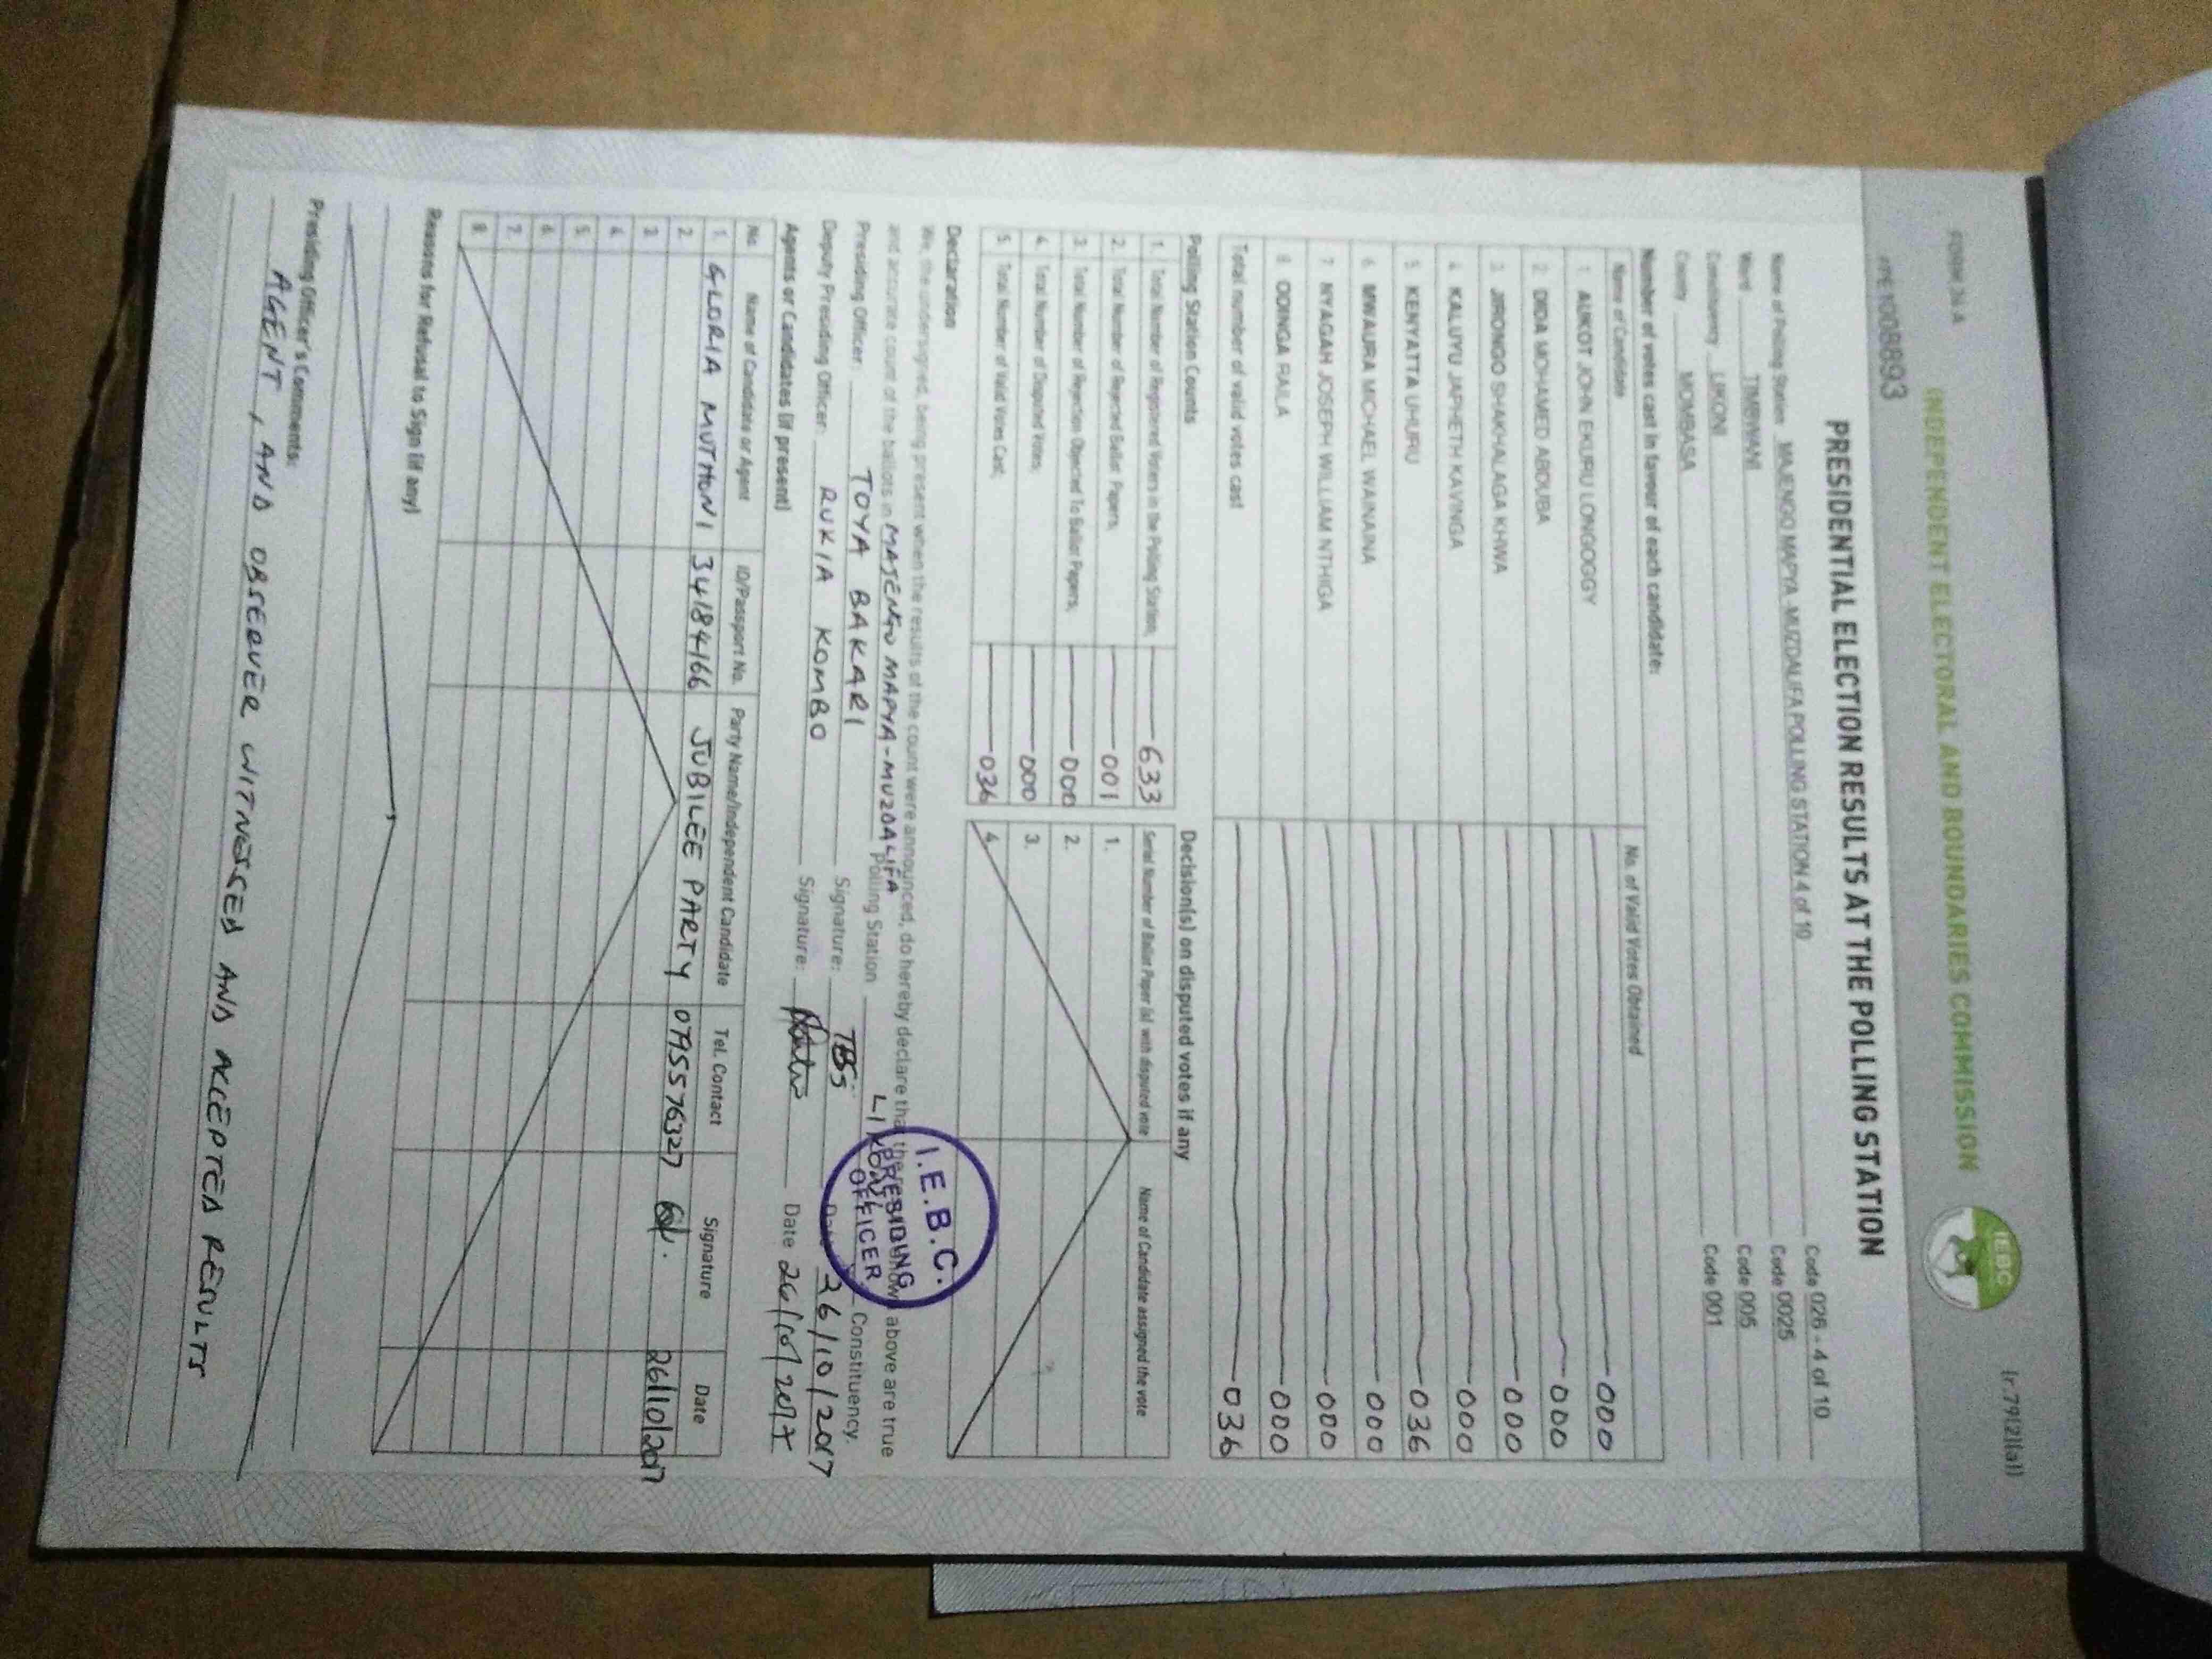 FORM 34A
(r.79(2)(a))
INDEPENDENT ELECTORAL AND BOUNDARIES COMMISSION
IEBC
1008893
PRESIDENTIAL ELECTION RESULTS AT THE POLLING STATION
Name of Polling Station MAJENGO MAPYA -MUZDALIFA POLLING STATION 4 of 10 Code 026 - 4 of 10
Ward TIMBWANI Code 0025
Constituency LIKONI Code 005
County MOMBASA Code 001
Number of votes cast in favour of each candidate:
Name of Candidate No. of Valid Votes Obtained
1 AUKOT JOHN EKURU LONGOGGY 000
2 DIDA MOHAMED ABDUBA 000
3 JIRONGO SHAKHALAGA KHWA 000
4 KALUYU JAPHETH KAVINGA 000
5 KENYATTA UHURU 036
6 MWAURA MICHAEL WAINAINA 000
7 NYAGAH JOSEPH WILLIAM NTHIGA 000
8 ODINGA RAILA 000
Total number of valid votes cast 036
Polling Station Counts
1. Total Number of Registered Voters in the Polling Station; 633
2. Total Number of Rejected Ballot Papers; 001
3. Total Number of Rejection Objected To Ballot Papers; 000
4. Total Number of Disputed Votes; 000
5. Total Number of Valid Votes Cast; 036
Decision(s) on disputed votes if any
Serial Number of Ballot Paper (s) with disputed vote Name of Candidate assigned the vote
1.
2.
3.
4.
Declaration
We, the undersigned, being present when the results of the count were announced, do hereby declare that the results shown above are true
and accurate count of the ballots in MAJENGO MAPYA-MUZDALIFA Polling Station LIKONI Constituency.
Presiding Officer: TOYA BAKARI Signature: Date 26/10/2017
Deputy Presiding Officer: RUKIA KOMBO Signature: Date 26/10/2017
I.E.B.C.
PRESIDING
OFFICER
Agents or Candidates (if present)
No. Name of Candidate or Agent ID/Passport No. Party Name/Independent Candidate Tel. Contact Signature Date
1. GLORIA MUTHONI 34184166 JUBILEE PARTY 0795576327 26/10/2017
2.
3.
4.
5.
6.
7.
8.
Reasons for Refusal to Sign (if any)
Presiding Officer's Comments:
AGENT, AND OBSERVER WITNESSED AND ACCEPTED RESULTS